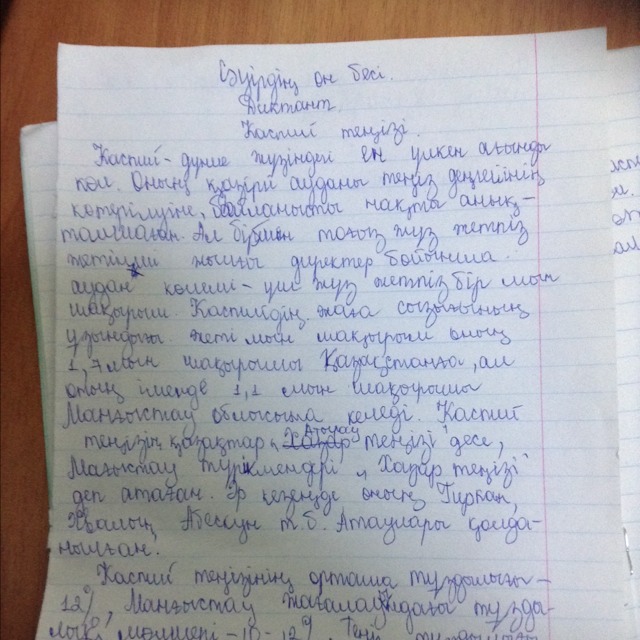 Сәуірдің он бесі.
Диктант.
Каспий теңізі.
Каспий - дүние жүзіндегі ең үлкен ағынды
көл. Оның қазіргі ауданы теңіз деңгейінің
көтерілуіне, байланысты нақты анық-
талмаған. Ал бір мың тоғыз жүз жетпіз
жетінші жылғы деректер бойынша.
аудан көлемі - үш жүз жетпіз бір мың
шақырым. Каспийдің жаға сызығының
ұзындығы жеті мың шақырым оның
1,7 мың шақырымы Қазақстанға, ал
оның ішінде 1,1 мың шақырымы
Манғыстау облысына келеді. Каспий
теңізін қазақтар „Атырау теңізі" десе,
Мағыстау түрікмендері „Хазар теңізі"
деп атаған. Әр кезеңде оның Гиркан,
Хвалын, Абескун т.б. Атаулары қолда-
нылған.
Каспий теңізінің орташа тұздылығы -
12%, Манғыстау жағалауындағы тұзды-
лық мөлшері - 10 - 12%.